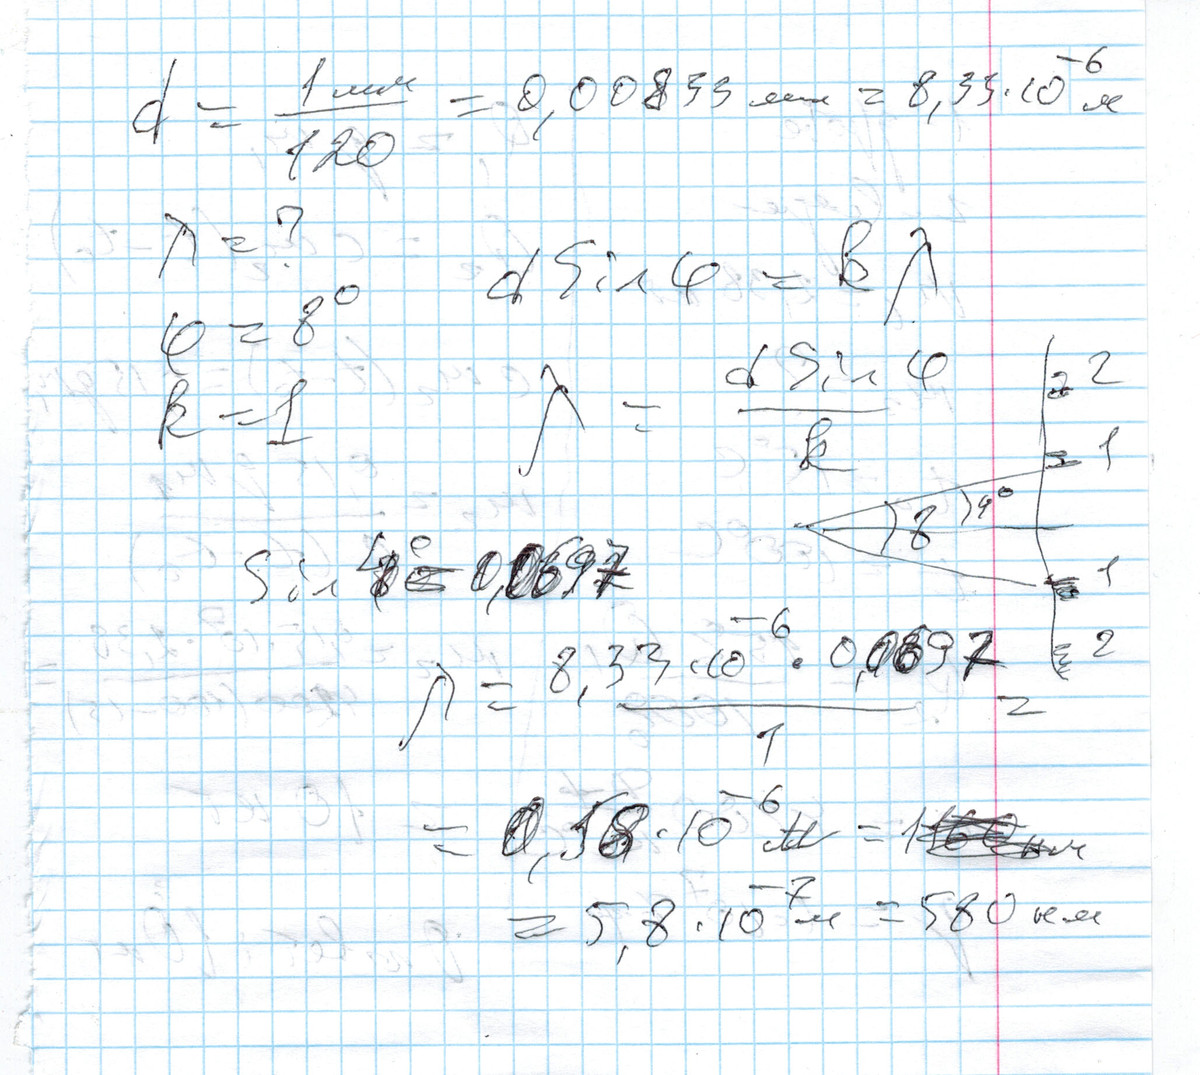 d = 1 мм / 120 = 0,00833 мм = 8,33·10⁻⁶ м
λ = ?
d Sin φ = k λ
φ = 8°
k = 1
λ = d Sin φ / k
2
1
8
4°
1
2
Sin 4° = 0,0697
λ = 8,33·10⁻⁶ · 0,0697 / 1 =
= 0,58·10⁻⁶ м =
= 5,8·10⁻⁷ м = 580 нм